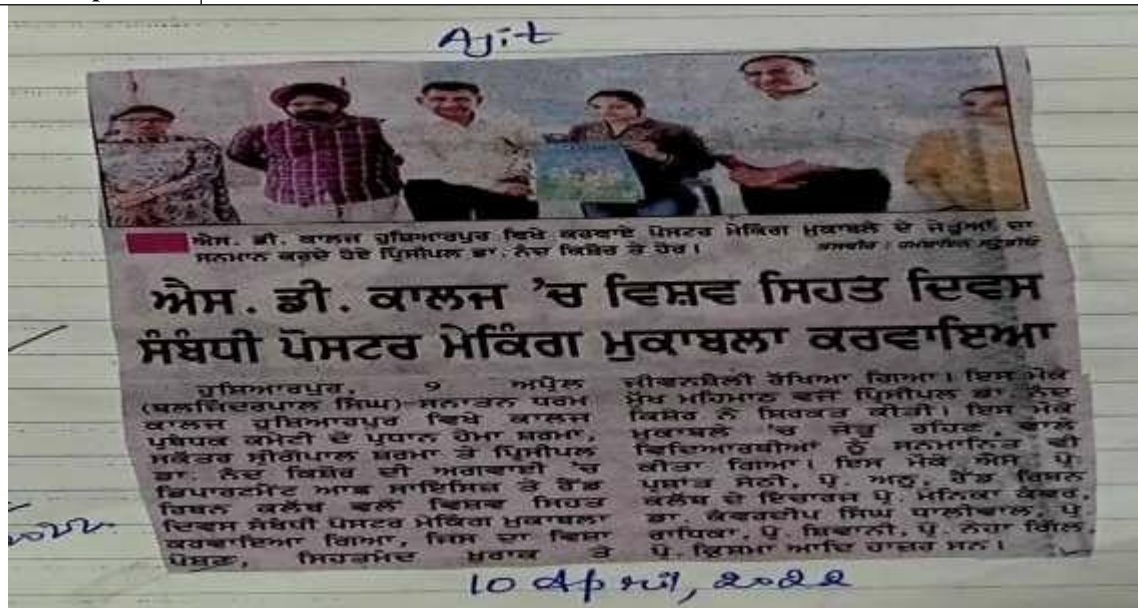 Ajit
ਐਸ. ਡੀ. ਕਾਲਜ ਹੁਸ਼ਿਆਰਪੁਰ ਵਿਖੇ ਕਰਵਾਏ ਪੋਸਟਰ ਮੇਕਿੰਗ ਮੁਕਾਬਲੇ ਦੇ ਜੇਤੂਆਂ ਦਾ
ਸਨਮਾਨ ਕਰਦੇ ਹੋਏ ਪ੍ਰਿੰਸੀਪਲ ਡਾ. ਨੰਦ ਕਿਸ਼ੋਰ ਤੇ ਹੋਰ। ਤਸਵੀਰ :
ਐਸ. ਡੀ. ਕਾਲਜ 'ਚ ਵਿਸ਼ਵ ਸਿਹਤ ਦਿਵਸ
ਸੰਬੰਧੀ ਪੋਸਟਰ ਮੇਕਿੰਗ ਮੁਕਾਬਲਾ ਕਰਵਾਇਆ
ਹੁਸ਼ਿਆਰਪੁਰ, 9 ਅਪ੍ਰੈਲ
(ਬਲਜਿੰਦਰਪਾਲ ਸਿੰਘ)-ਸਨਾਤਨ ਧਰਮ
ਕਾਲਜ ਹੁਸ਼ਿਆਰਪੁਰ ਵਿਖੇ ਕਾਲਜ
ਪ੍ਰਬੰਧਕ ਕਮੇਟੀ ਦੇ ਪ੍ਰਧਾਨ ਹੇਮਾ ਸ਼ਰਮਾ,
ਸਕੱਤਰ ਸ੍ਰੀਗੋਪਾਲ ਸ਼ਰਮਾ ਤੇ ਪ੍ਰਿੰਸੀਪਲ
ਡਾ. ਨੰਦ ਕਿਸ਼ੋਰ ਦੀ ਅਗਵਾਈ 'ਚ
ਡਿਪਾਰਟਮੈਂਟ ਆਫ਼ ਸਾਇੰਸਿਜ਼ ਤੇ ਰੈੱਡ
ਰਿਬਨ ਕਲੱਬ ਵਲੋਂ ਵਿਸ਼ਵ ਸਿਹਤ
ਦਿਵਸ ਸੰਬੰਧੀ ਪੋਸਟਰ ਮੇਕਿੰਗ ਮੁਕਾਬਲਾ
ਕਰਵਾਇਆ ਗਿਆ, ਜਿਸ ਦਾ ਵਿਸ਼ਾ
ਪੋਸ਼ਣ, ਸਿਹਤਮੰਦ ਖ਼ੁਰਾਕ ਤੇ
ਜੀਵਨਸ਼ੈਲੀ ਰੱਖਿਆ ਗਿਆ। ਇਸ ਮੌਕੇ
ਮੁੱਖ ਮਹਿਮਾਨ ਵਜੋਂ ਪ੍ਰਿੰਸੀਪਲ ਡਾ. ਨੰਦ
ਕਿਸ਼ੋਰ ਨੇ ਸ਼ਿਰਕਤ ਕੀਤੀ। ਇਸ ਮੌਕੇ
ਮੁਕਾਬਲੇ 'ਚ ਜੇਤੂ ਰਹਿਣ ਵਾਲੇ
ਵਿਦਿਆਰਥੀਆਂ ਨੂੰ ਸਨਮਾਨਿਤ ਵੀ
ਕੀਤਾ ਗਿਆ। ਇਸ ਮੌਕੇ ਐਸੋ. ਪ੍ਰੋ.
ਪ੍ਰਸ਼ਾਂਤ ਸੇਠੀ, ਪ੍ਰੋ. ਅਨੂ, ਰੈੱਡ ਰਿਬਨ
ਕਲੱਬ ਦੇ ਇੰਚਾਰਜ ਪ੍ਰੋ. ਮੋਨਿਕਾ ਕੰਵਰ,
ਡਾ. ਕੰਵਰਦੀਪ ਸਿੰਘ ਧਾਲੀਵਾਲ, ਪ੍ਰੋ.
ਰਾਧਿਕਾ, ਪ੍ਰੋ. ਸ਼ਿਵਾਨੀ, ਪ੍ਰੋ. ਨੇਹਾ ਗਿੱਲ,
ਪ੍ਰੋ. ਕ੍ਰਿਸ਼ਮਾ ਆਦਿ ਹਾਜ਼ਰ ਸਨ।
10 April, 2022